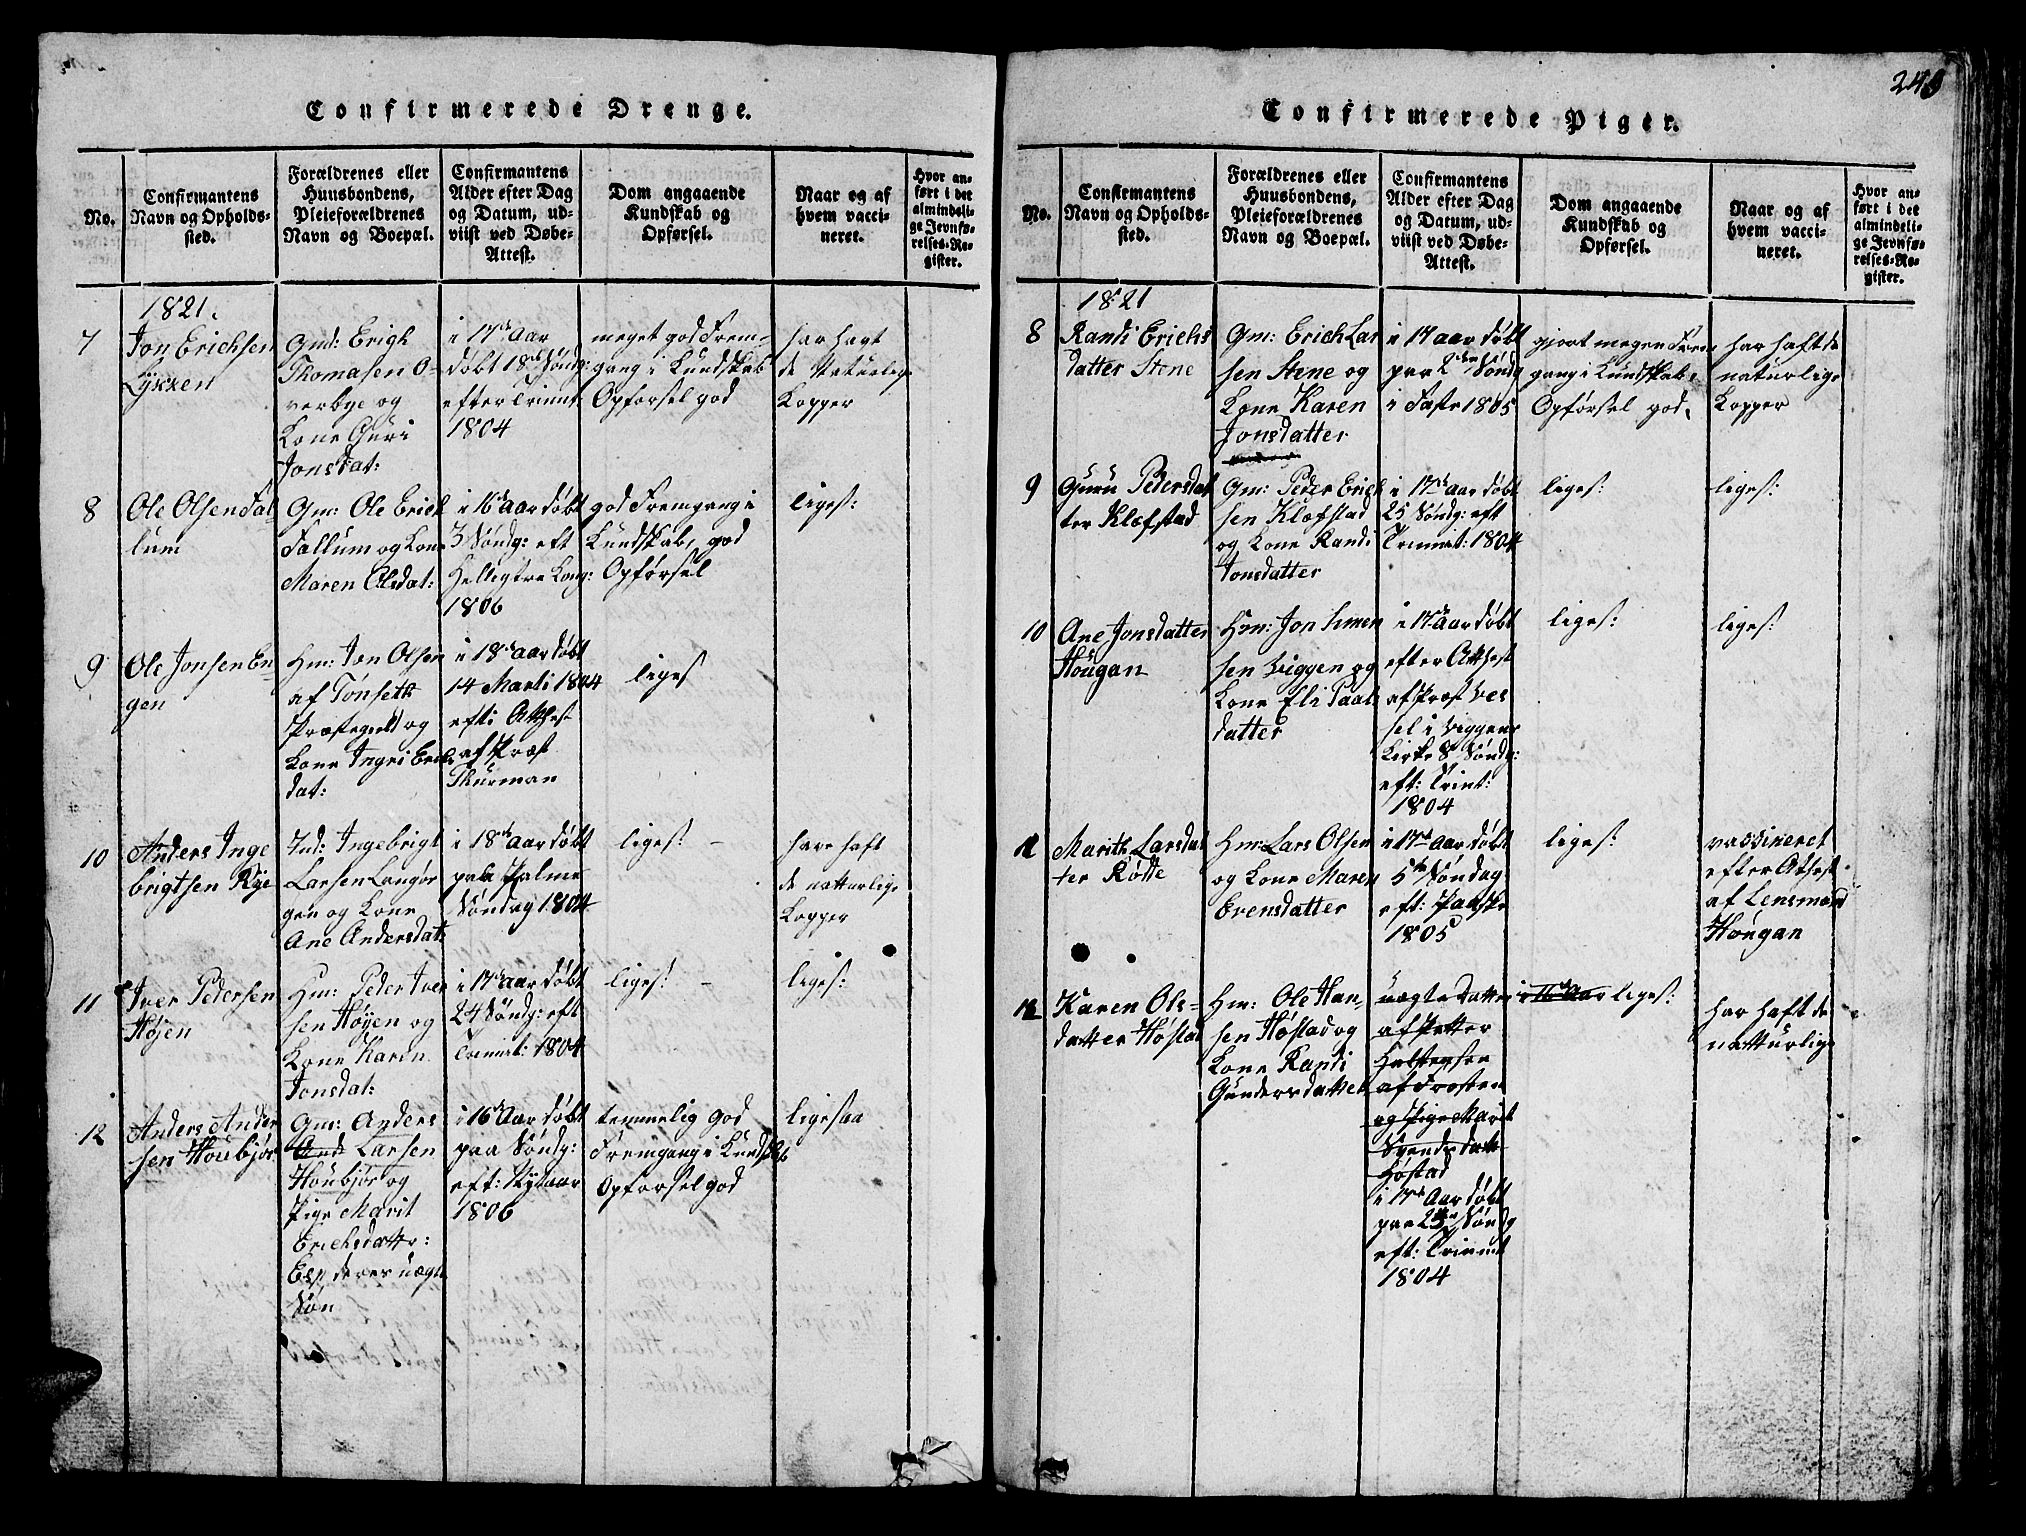 248
Confirmerede Drenge.
No.
Confirmantens
Navn og Opholds-
sted.
Forældrenes eller
Huusbondens,
Pleieforældrenes
Navn og Boepæl.
Confirmantens
Alder efter Dag
og Datum, ud-
viist ved Døbe-
Attest.
Dom angaaende
Kundskab og
Opførsel.
Naar og af
hvem vacci-
neret.
Hvor an-
ført i det
almindeli-
ge Jevnfø-
relses-Re-
gister.
1821.
7
Jon Erichsen
Lykken
Gmd: Erigh
Thomasen O-
verbye og
Kone Guri
Jonsdat:
i 17de Aar
døbt 18de Søndg:
efter Trinit:
1804
meget god Frem-
gang i Kundskab
Opførsel god
har hagt
de naturlige
Kopper
8
Ole Olsen Fal-
lum
Gm: Ole Erich
Fallum og Kone
Maren Olsdat:
i 16de Aar døbt
3 Søndg: eft
Helligtre Kong:
1806
god Fremgang i
Kundskab, god
Opførsel
liges:
9
Ole Jonsen En-
gen
Hm: Jon Olsen
af Tønseth
Præstegield og
Kone Ingri Erichs
dat:
i 18de Aar døbt
14 Marti 1804
efti Atthest
af Præst
Thurman
liges
10
Anders Inge
brigtsen Rye
Ind: Ingebrigt
Larsen Langør
gen og Kone
Ane Andersdat:
i 18de Aar døbt
paa Palme
Søndag 1804
liges:
have haft
de natturlige
Kopper
11
Iver Pedersen
Høyen
Hm: Peder Iver
sen Høyen og
Kone Karen
Jonsdat:
i 17de Aar døbt
24 Søndg: eft
Trinit: 1804
liges:
liges:
12
Anders Ander
sen Houbjør
Gm: Anders
And Larsen
Houbjør og
Pige Marit
Erichsdattr:
Esp deres uægte
Søn
i 16de Aar døbt
paa Søndg:
eft: Nytaar
1806
temmelig god
Fremgang i Kundskab
Opførsel god
ligesaa
Confirmerede Piger.
No.
Confirmantens
Navn og Opholds-
sted.
Forældrenes eller
Huusbondens,
Pleieforældrenes
Navn og Boepæl.
Confirmantens
Alder efter Dag
og Datum, ud-
viist ved Døbe-
Attest.
Dom angaaende
Kundskab og
Opførsel.
Naar og af
hvem vacci-
neret.
Hvor an-
ført i det
almindeli-
ge Jevnfø-
relses-Re-
gister.
1821
8
Randi Erichs
datter Stene
Gm: Erich Lar
sen Stene og
Kone Karen
Jonsdatter
i 17 Aar døbt
paa 2den Søndg
i Faste 1805
gjort megen Frem
gang i Kundskab,
Opførsel god.
har haft de
naturlige
Kopper
9
Guru Pedersdat
ter Klæfstad
Gm: Peder Erich
sen Klæfstad
og Kone Randi
Jonsdatter
i 17de Aar døbt
25 Søndg: eft
Trinit: 1804
liges:
liges:
10
Ane Jonsdatter
Hougan
Hm: Jon Simen
sen Viggen og
Kone Eli Paals
datter
i 17de Aar døbt
efter Atthest
af Præst Ves
sel i Viggens
Kirke 8de Søndg:
eft: Trint:
1804
liges:
liges:
11
Marith Larsdat
ter Rødte
Hm: Lars Olsen
og Kone Maren
Evensdatter
i 17de Aar døbt
5te Søndag
eft: Paaske
1805
liges:
vassineret
efter Athest
af Lensmand
Hougan
12
Karen Ols-
datter Høstad
Hm: Ole Han-
sen Høstad og
Kone Randi
Gundersdatter
uægte Datter i 16de Aar
af Petter
af Frosten
og Pige Marit
Svendsdatt
Høstad
i 17de Aar døbt
paa 25de Søndg
eft: Trinint
1804
liges:
har haft de
natturlige